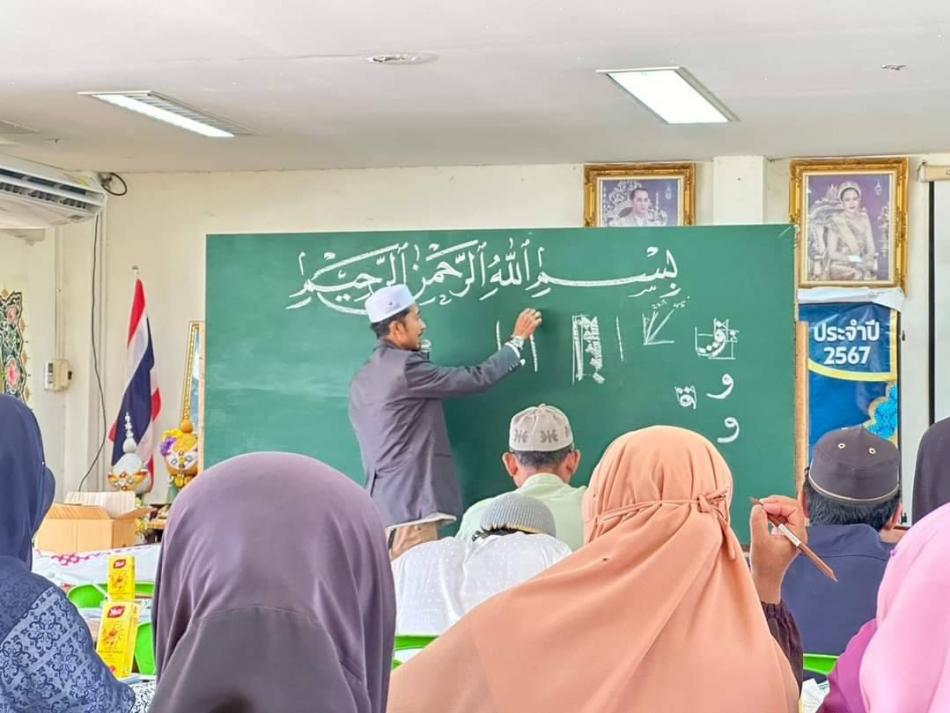 بِسْمِ ٱللَّهِ ٱلرَّحْمَٰنِ ٱلرَّحِيمِ
و
و
ประจำปี
2567